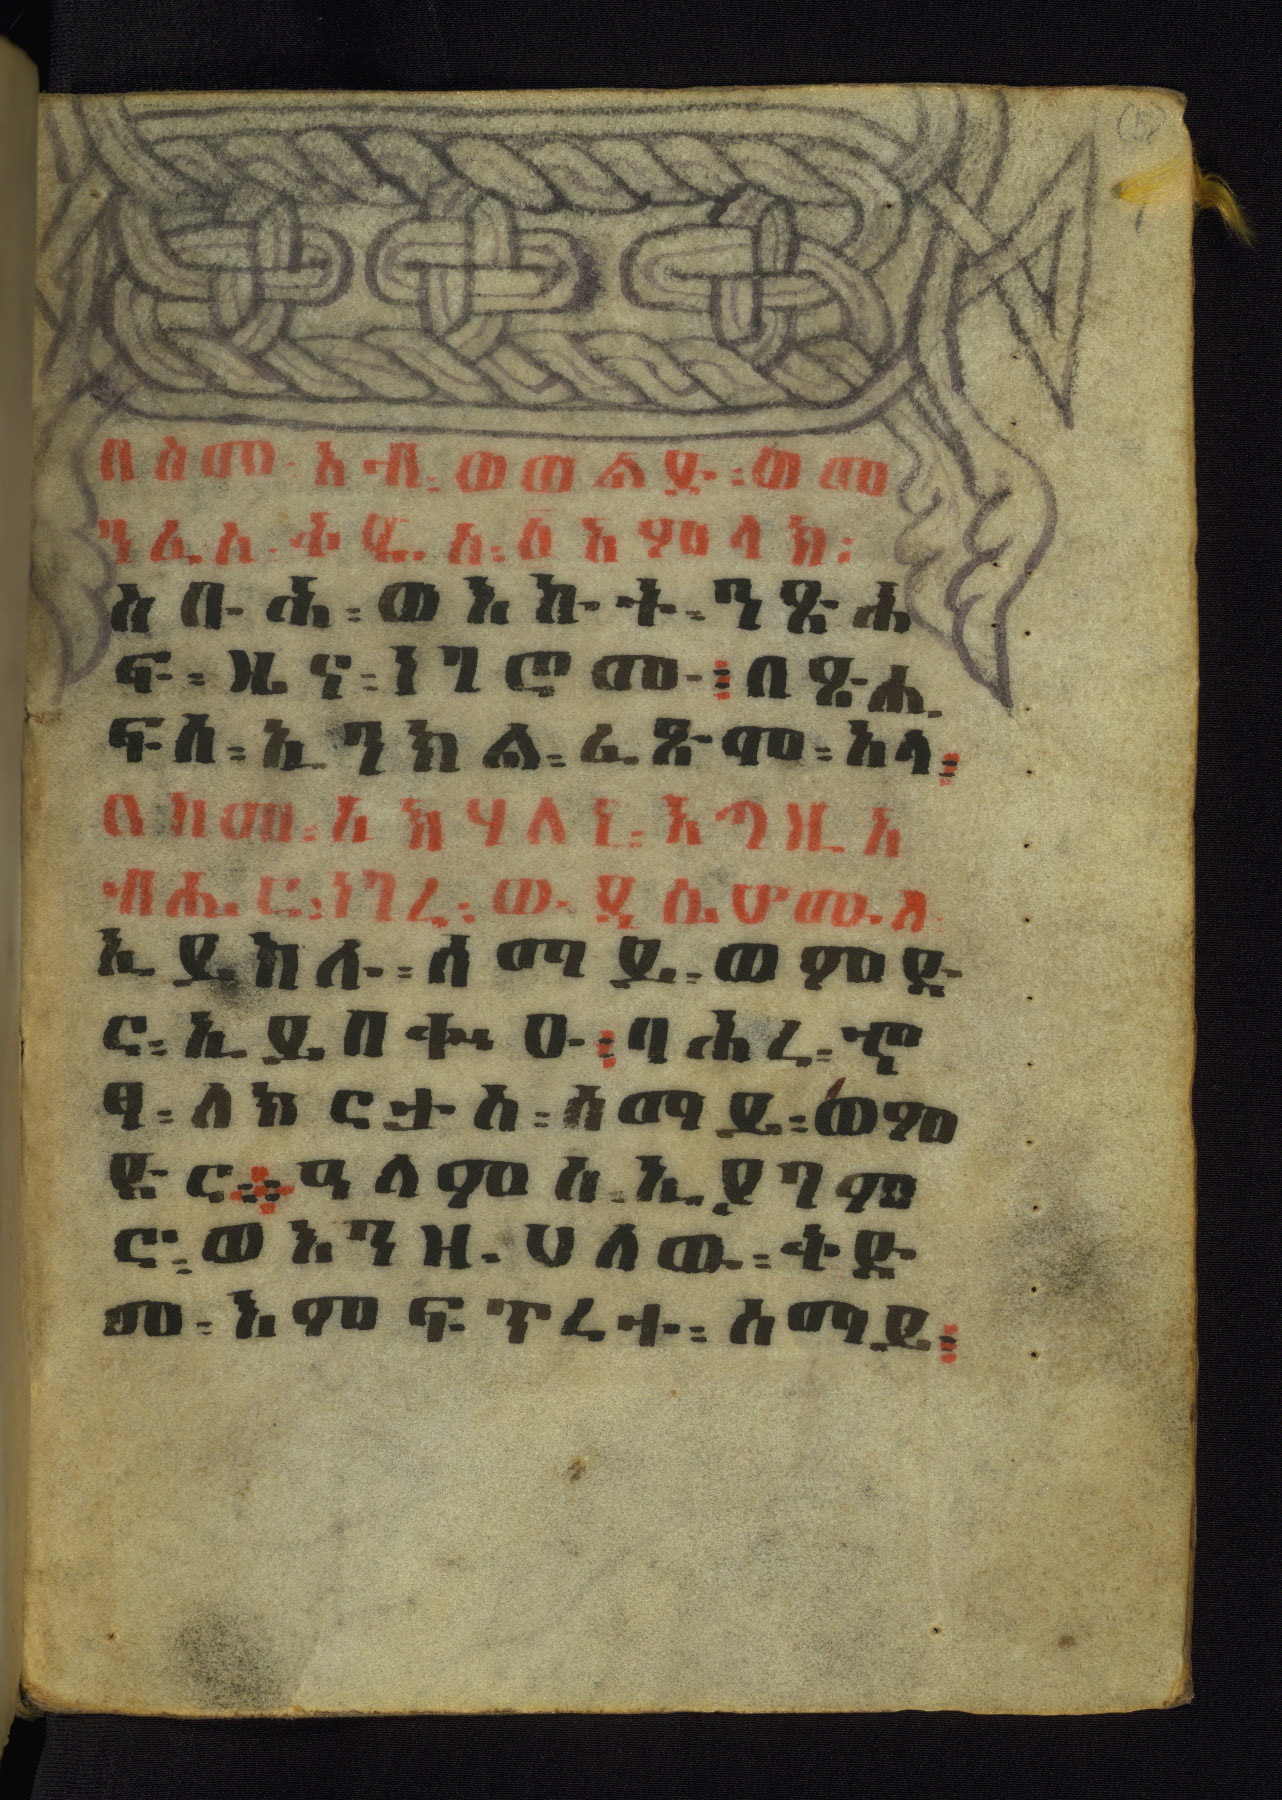 በስመ፡ አብ፡ ወወልድ፡ ወመ
ንፈስ፡ ቅዱስ፡ ፩ አምላክ፡
ስቡሕ፡ ወእኩት፡ ንጽሕ
ፍ፡ ዜና፡ ነገሮሙ፡ በጽሒ
ፍሰ፡ ኢንክል፡ ፈጽሞ፡ አላ፡
በከመ፡ አክሃለነ፡ እግዚአ
ብሔር፡ ነገረ፡ ውዳሴሆሙ፡ ለ
ኢይክሉ፡ ሰማይ፡ ወምድ
ር፡ ኢይበቍዑ፡ ባሕረ፡ ሮ
ጳ፡ ለክርታስ፡ ሰማይ፡ ወም
ድር፡ ዓለም ሰ፡ ኢያገም
ር፡ ወእንዘ፡ ሀለው፡ ትድ
መ፡ እምፍጥረተ፡ ሰማይ፡